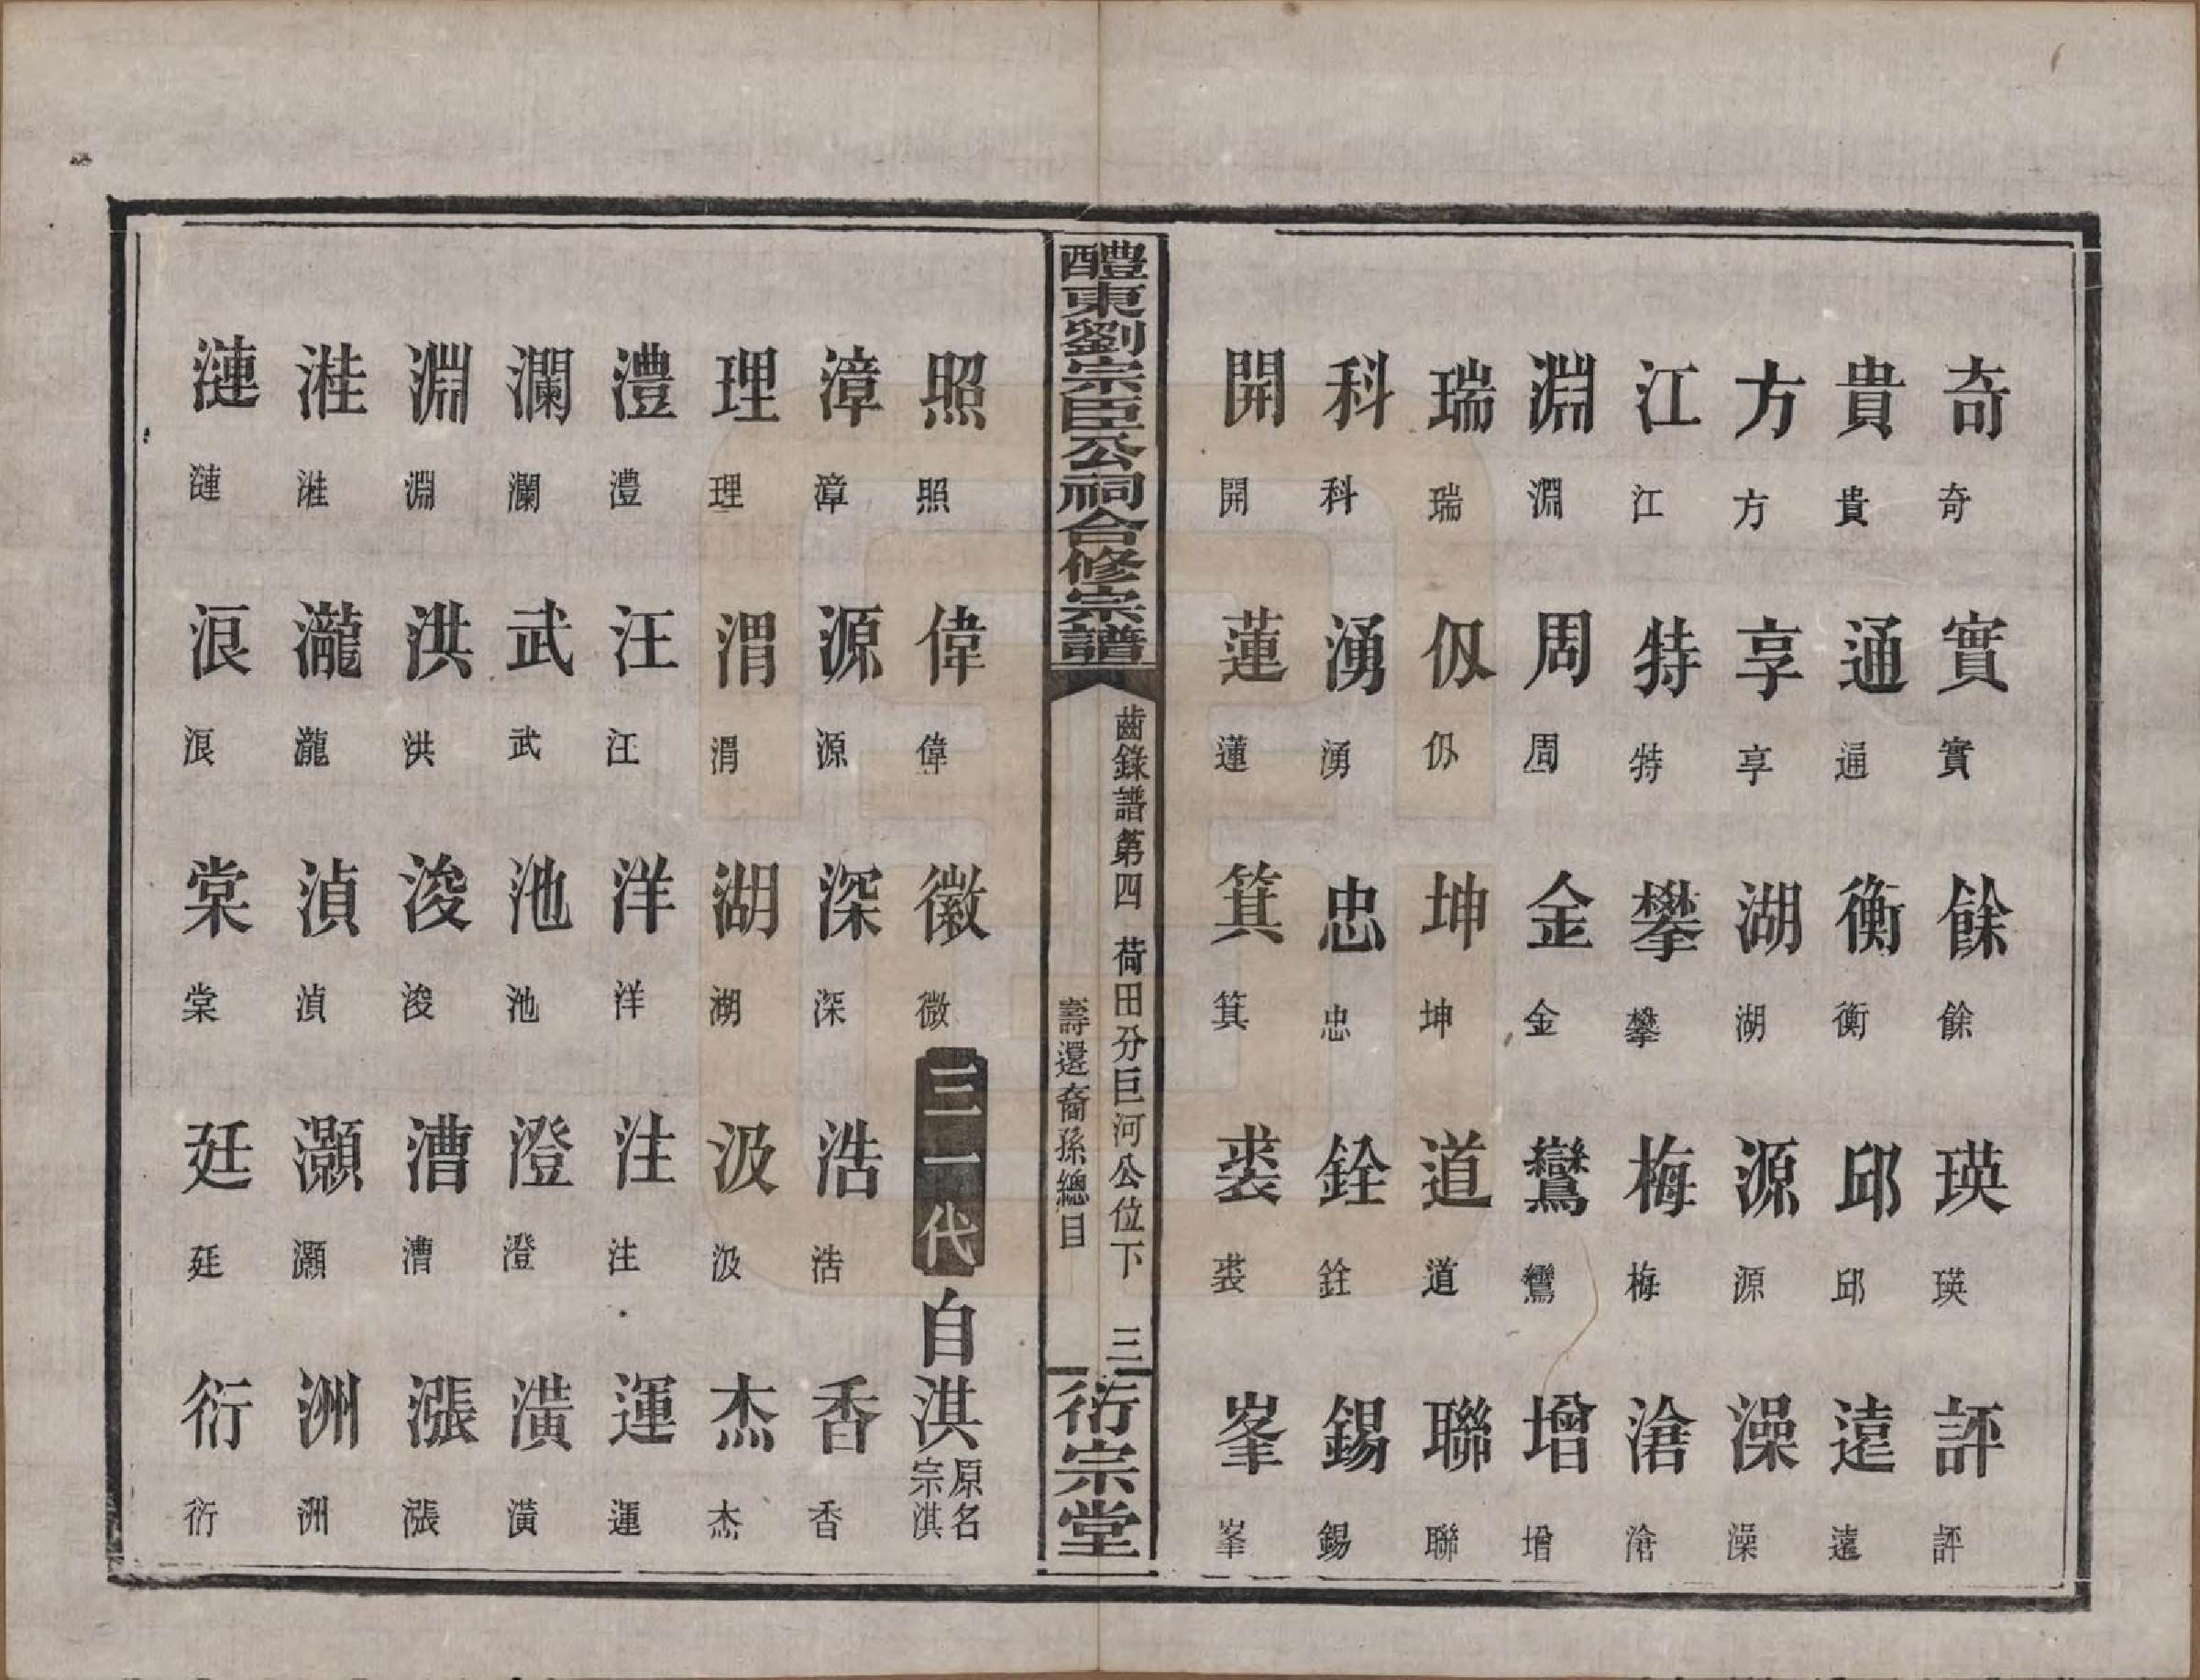 奇奇實實餘餘瑛瑛評評
貴貴通通衡衡邱邱遠遠
方方享享湖湖源源澡澡
江江特特攀攀梅梅滄滄
淵淵周周金金鸞鸞增增
瑞瑞仭仭坤坤道道聯聯
科科湧湧忠忠銓銓錫錫
開開蓮蓮箕箕裘裘峯峯
醴東劉宗臣公祠合修宗譜
齒錄譜第四 荷田分巨河公位下 三
壽還裔孫總目
衍宗堂
照照偉偉徽徽三一代自淇原名宗淇
漳漳源源深深浩浩香香
理理渭渭湖湖汲汲杰杰
澧澧汪汪洋洋注注運運
瀾瀾武武池池澄澄潢潢
淵淵洪洪浚浚漕漕漲漲
溎溎瀧瀧湞湞灝灝洲洲
漣漣浪浪棠棠廷廷衍衍